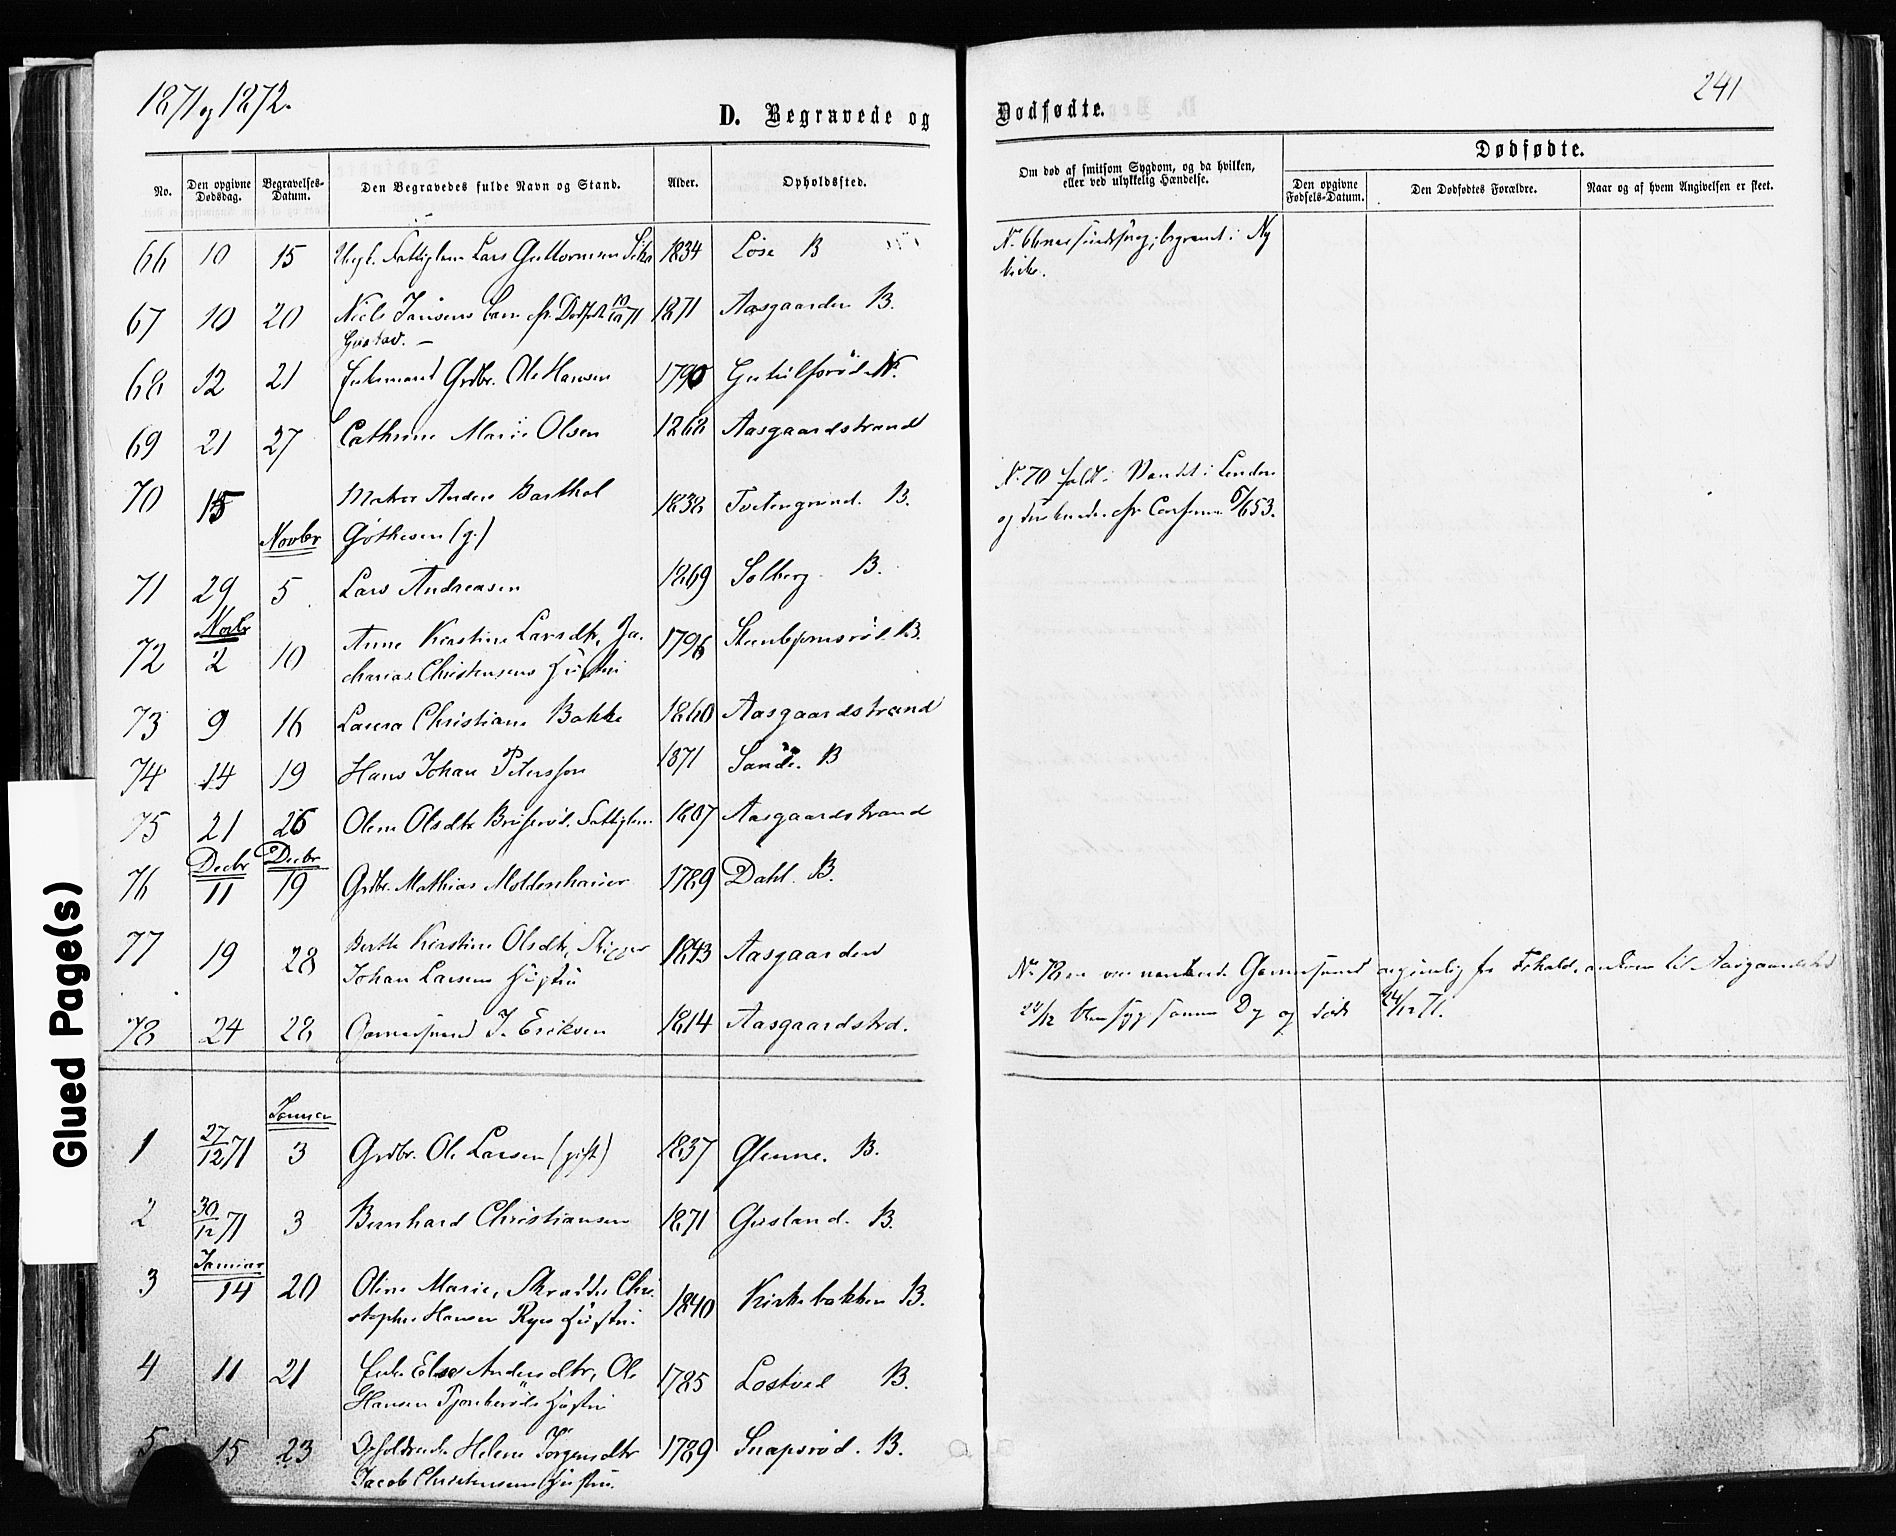 1871 og 1872.
241
D. Begravede og Dødfødte.
No.
Den opgivne Dødsdag.
Begravelses-Datum.
Den Begravedes fulde Navn og Stand.
Alder.
Opholdssted.
Om død af smitsom Sygdom, og da hvilken, eller ved ulykkelig Hændelse.
Dødfødte.
Den opgivne Fødsels-Datum.
Den Dødfødtes Forældre.
Naar og af hvem Angivelsen er skeet.
66 10 15 Lars Guttormsen 1834 Løse B
67 10 20 Niels Jansens barn 1871 Aasgaarden B.
Gustav. —
68 12 21 Enkemand Grdbr. Ole Hansen 1790 N.
69 21 27 Cathrine Marie Olsen 1868 Aasgaardstrand
70 15 Matros Anders Barthol 1838 B.
Novbr Gøthesen (g.)
N. 70 faldt i Vandet i London
og druknede
71 29 5 Lars Andreasen 1869 Solberg B.
Novbr
72 2 10 Anne Kirstine Larsdtr, Za-
charias Christensens Hustru 1796 Steenbjørnsrød B.
73 9 16 Laura Christiane Bakke 1860 Aasgaardstrand
74 14 19 Hans Johan Peterssen 1871 Sande B
75 21 26 Olene Olsdtr 1807 Aasgaardstrand
Decbr Decbr
76 11 19 Grdbr. Mathias Moldenhauer 1789 Dahl. B.
77 19 28 Berthe Kirstine Olsdtr, Skipper
Johan Larsens Hustru 1843 Aasgaarden
78 24 28 J. Eriksen 1814 Aasgaardstrd.
syg samme Dag og døde 24/12 71.
Januar
1 27/12 71 3 Grdbr. Ole Larsen (gift) 1837 Glenne. B.
2 30/12 71 3 Bernhard Christiansen 1871 B.
Januar
3 14 20 Oline Marie, Skrædder Chri-
stopher Hansen Ryes Hustru. 1840 Kirkebakken B.
4 11 21 Enke Else Andersdtr, Ole
Hansen Hustru 1785 B.
5 15 23 Helene Jørgensdtr
Jacob Christensens Hustru. 1789 Snapsrød. B.
Glued Page(s)